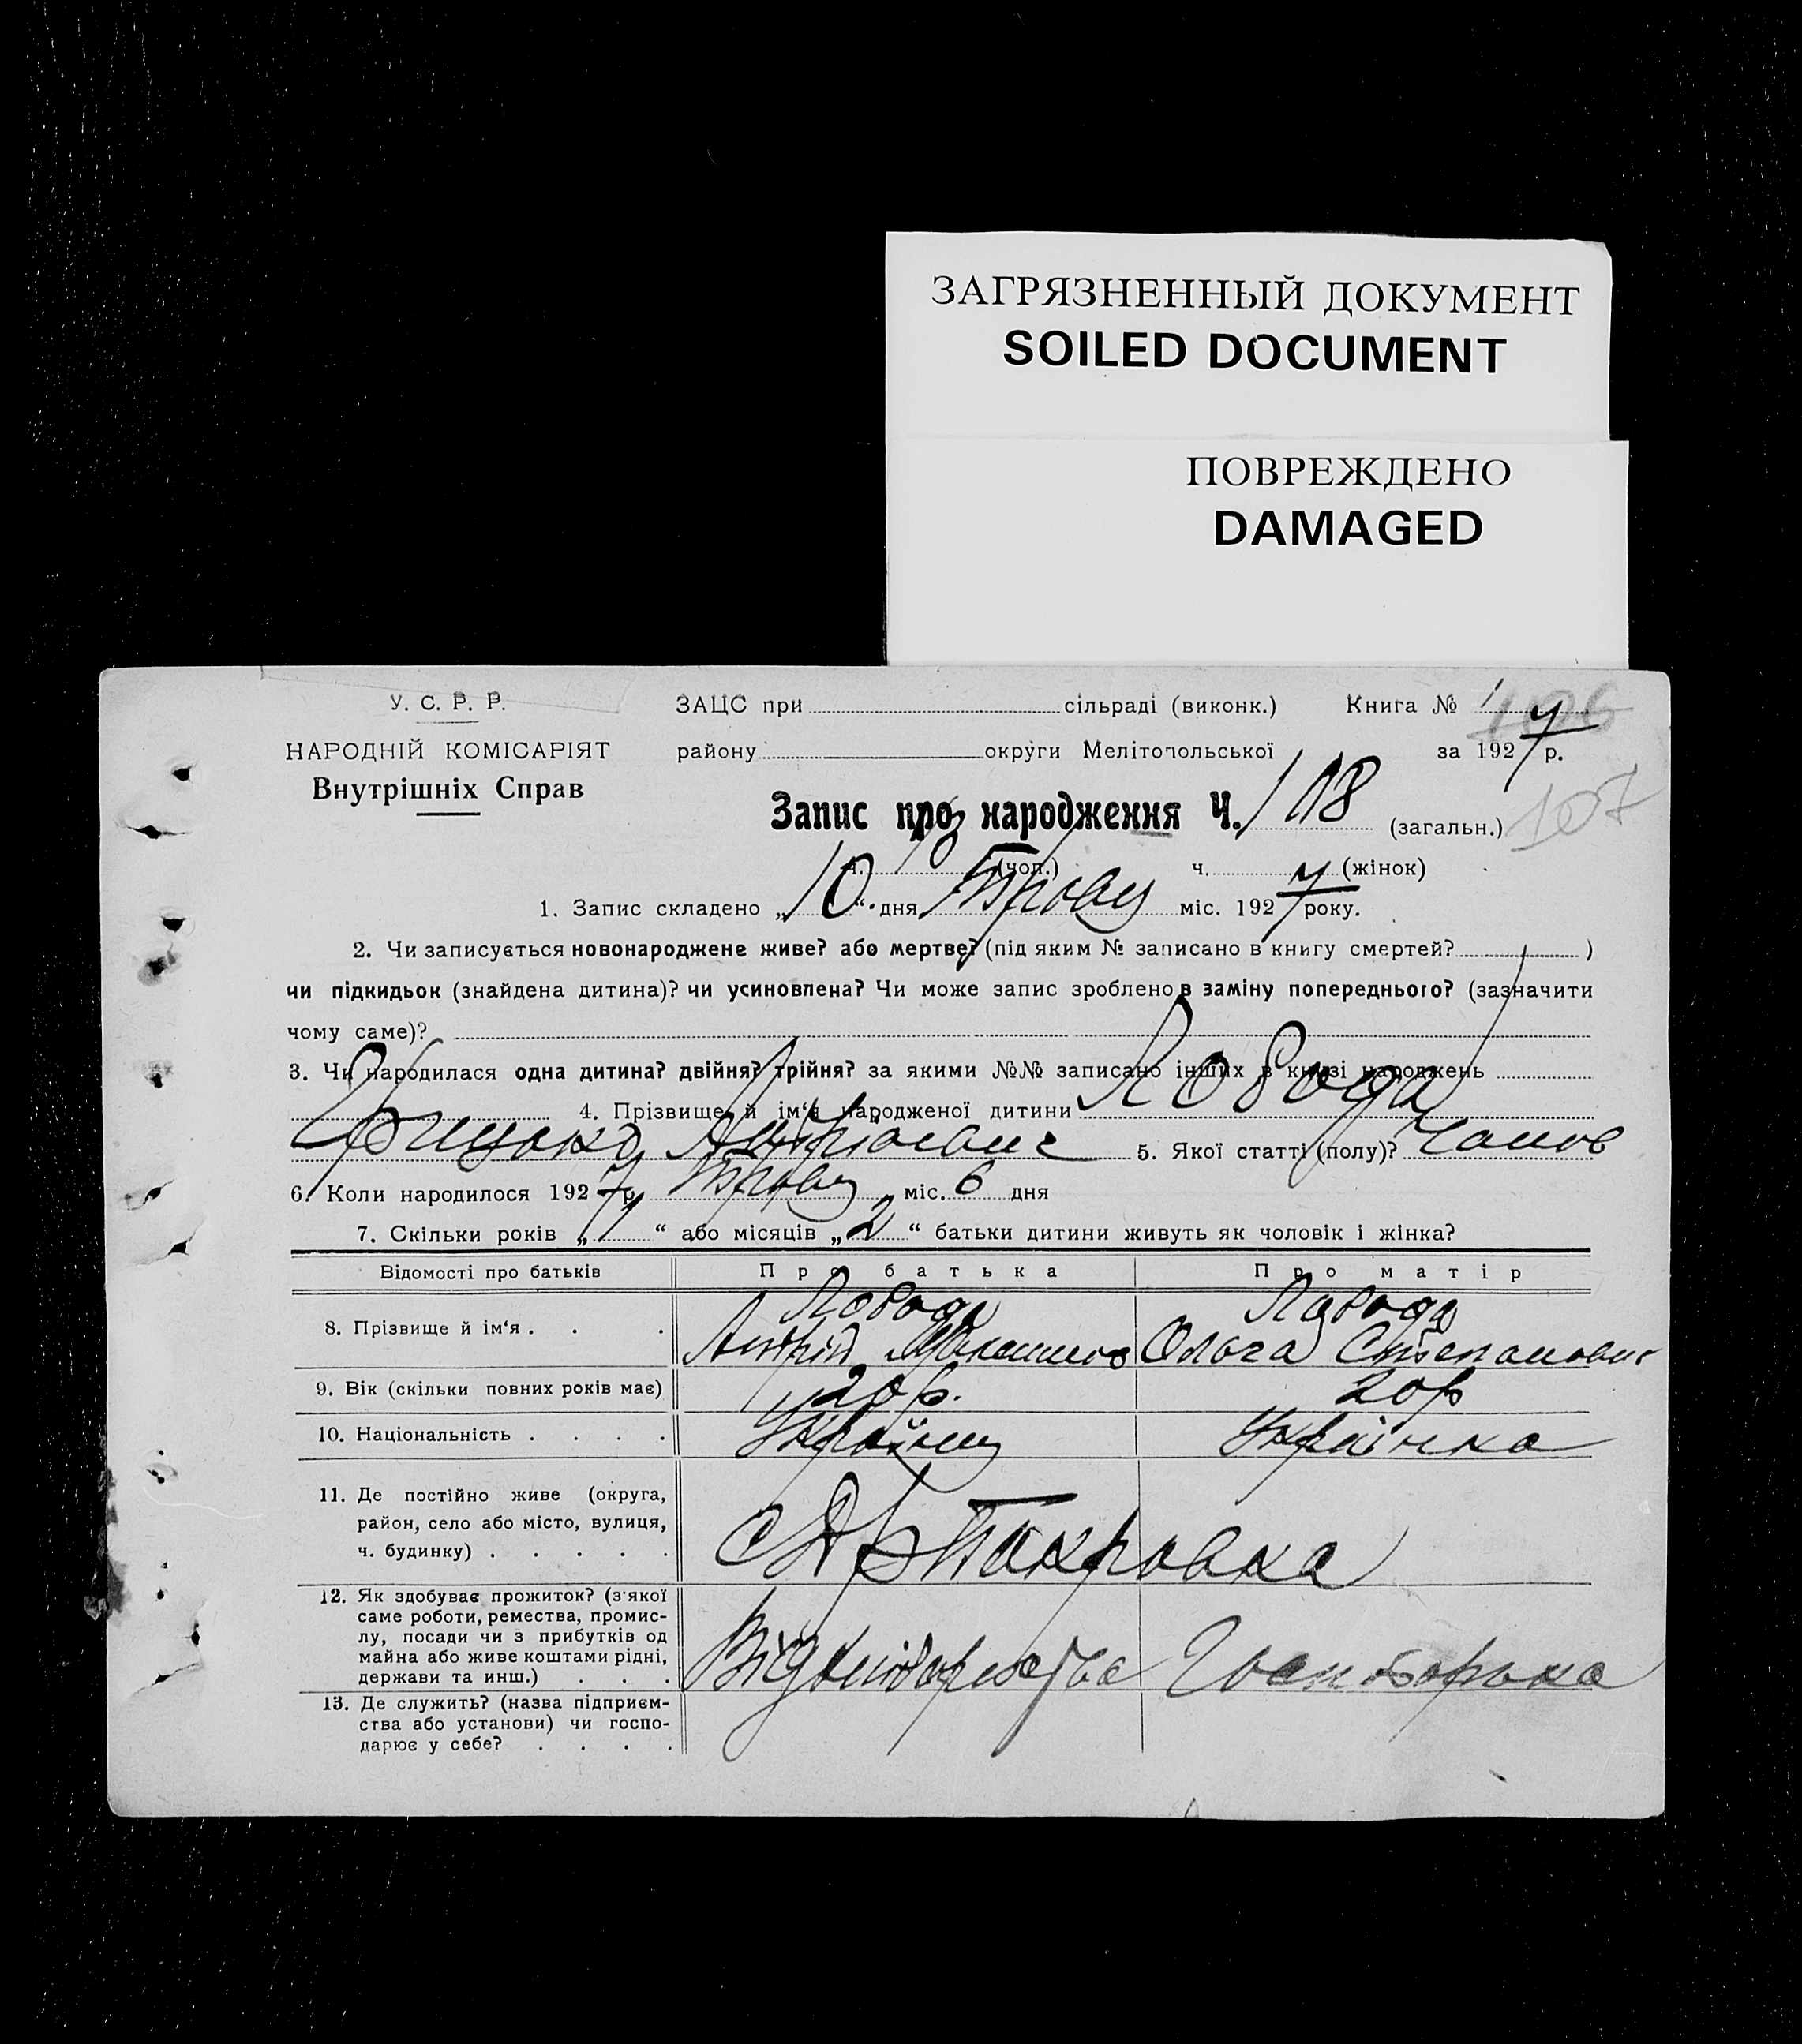 ЗАГРЯЗНЕННЫЙ ДОКУМЕНТ
SOILED DOCUMENT
ПОВРЕЖДЕНО
DAMAGED
У. С. Р. Р.
НАРОДНІЙ КОМІСАРІЯТ
Внутрішніх Справ
ЗАЦС при сільраді (виконк.) Книга № 1 106
району округи Мелітопольської за 1927 р.
Запис про народження Ч. 118 (загальн.) 107
ч. 70 (чол.) ч. (жінок)
1. Запис складено „10“ дня міс. 1927 року.
2. Чи записується новонароджене живе? або мертве? (під яким № записано в книгу смертей? )
чи підкидьок (знайдена дитина)? чи усиновлена? Чи може запис зроблено в заміну попереднього? (зазначити
чому саме)?
3. Чи народилася одна дитина? двійня? трійня? за якими №№ записано інших в книзі народжень
4. Прізвище й ім‘я народженої дитини Лобода
5. Якої статті (полу)? Чолов
6. Коли народилося 1927 р. міс. 6 дня
7. Скільки років „1“ або місяців „2“ батьки дитини живуть як чоловік і жінка?
Відомості про батьків Про батька Про матір
8. Прізвище й ім‘я . . . Лобода Лобода
Ольга Степановн
9. Вік (скільки повних років має) 20 р. 20 р
10. Національність . . . . Українц Українка
11. Де постійно живе (округа,
район, село або місто, вулиця,
ч. будинку) . . . . . Покровка
12. Як здобуває прожиток? (з‘якої
саме роботи, ремества, промис-
лу, посади чи з прибутків од
майна або живе коштами рідні,
держави та инш.) . . .
13. Де служить? (назва підприєм-
ства або установи) чи госпо-
дарює у себе? . . . .